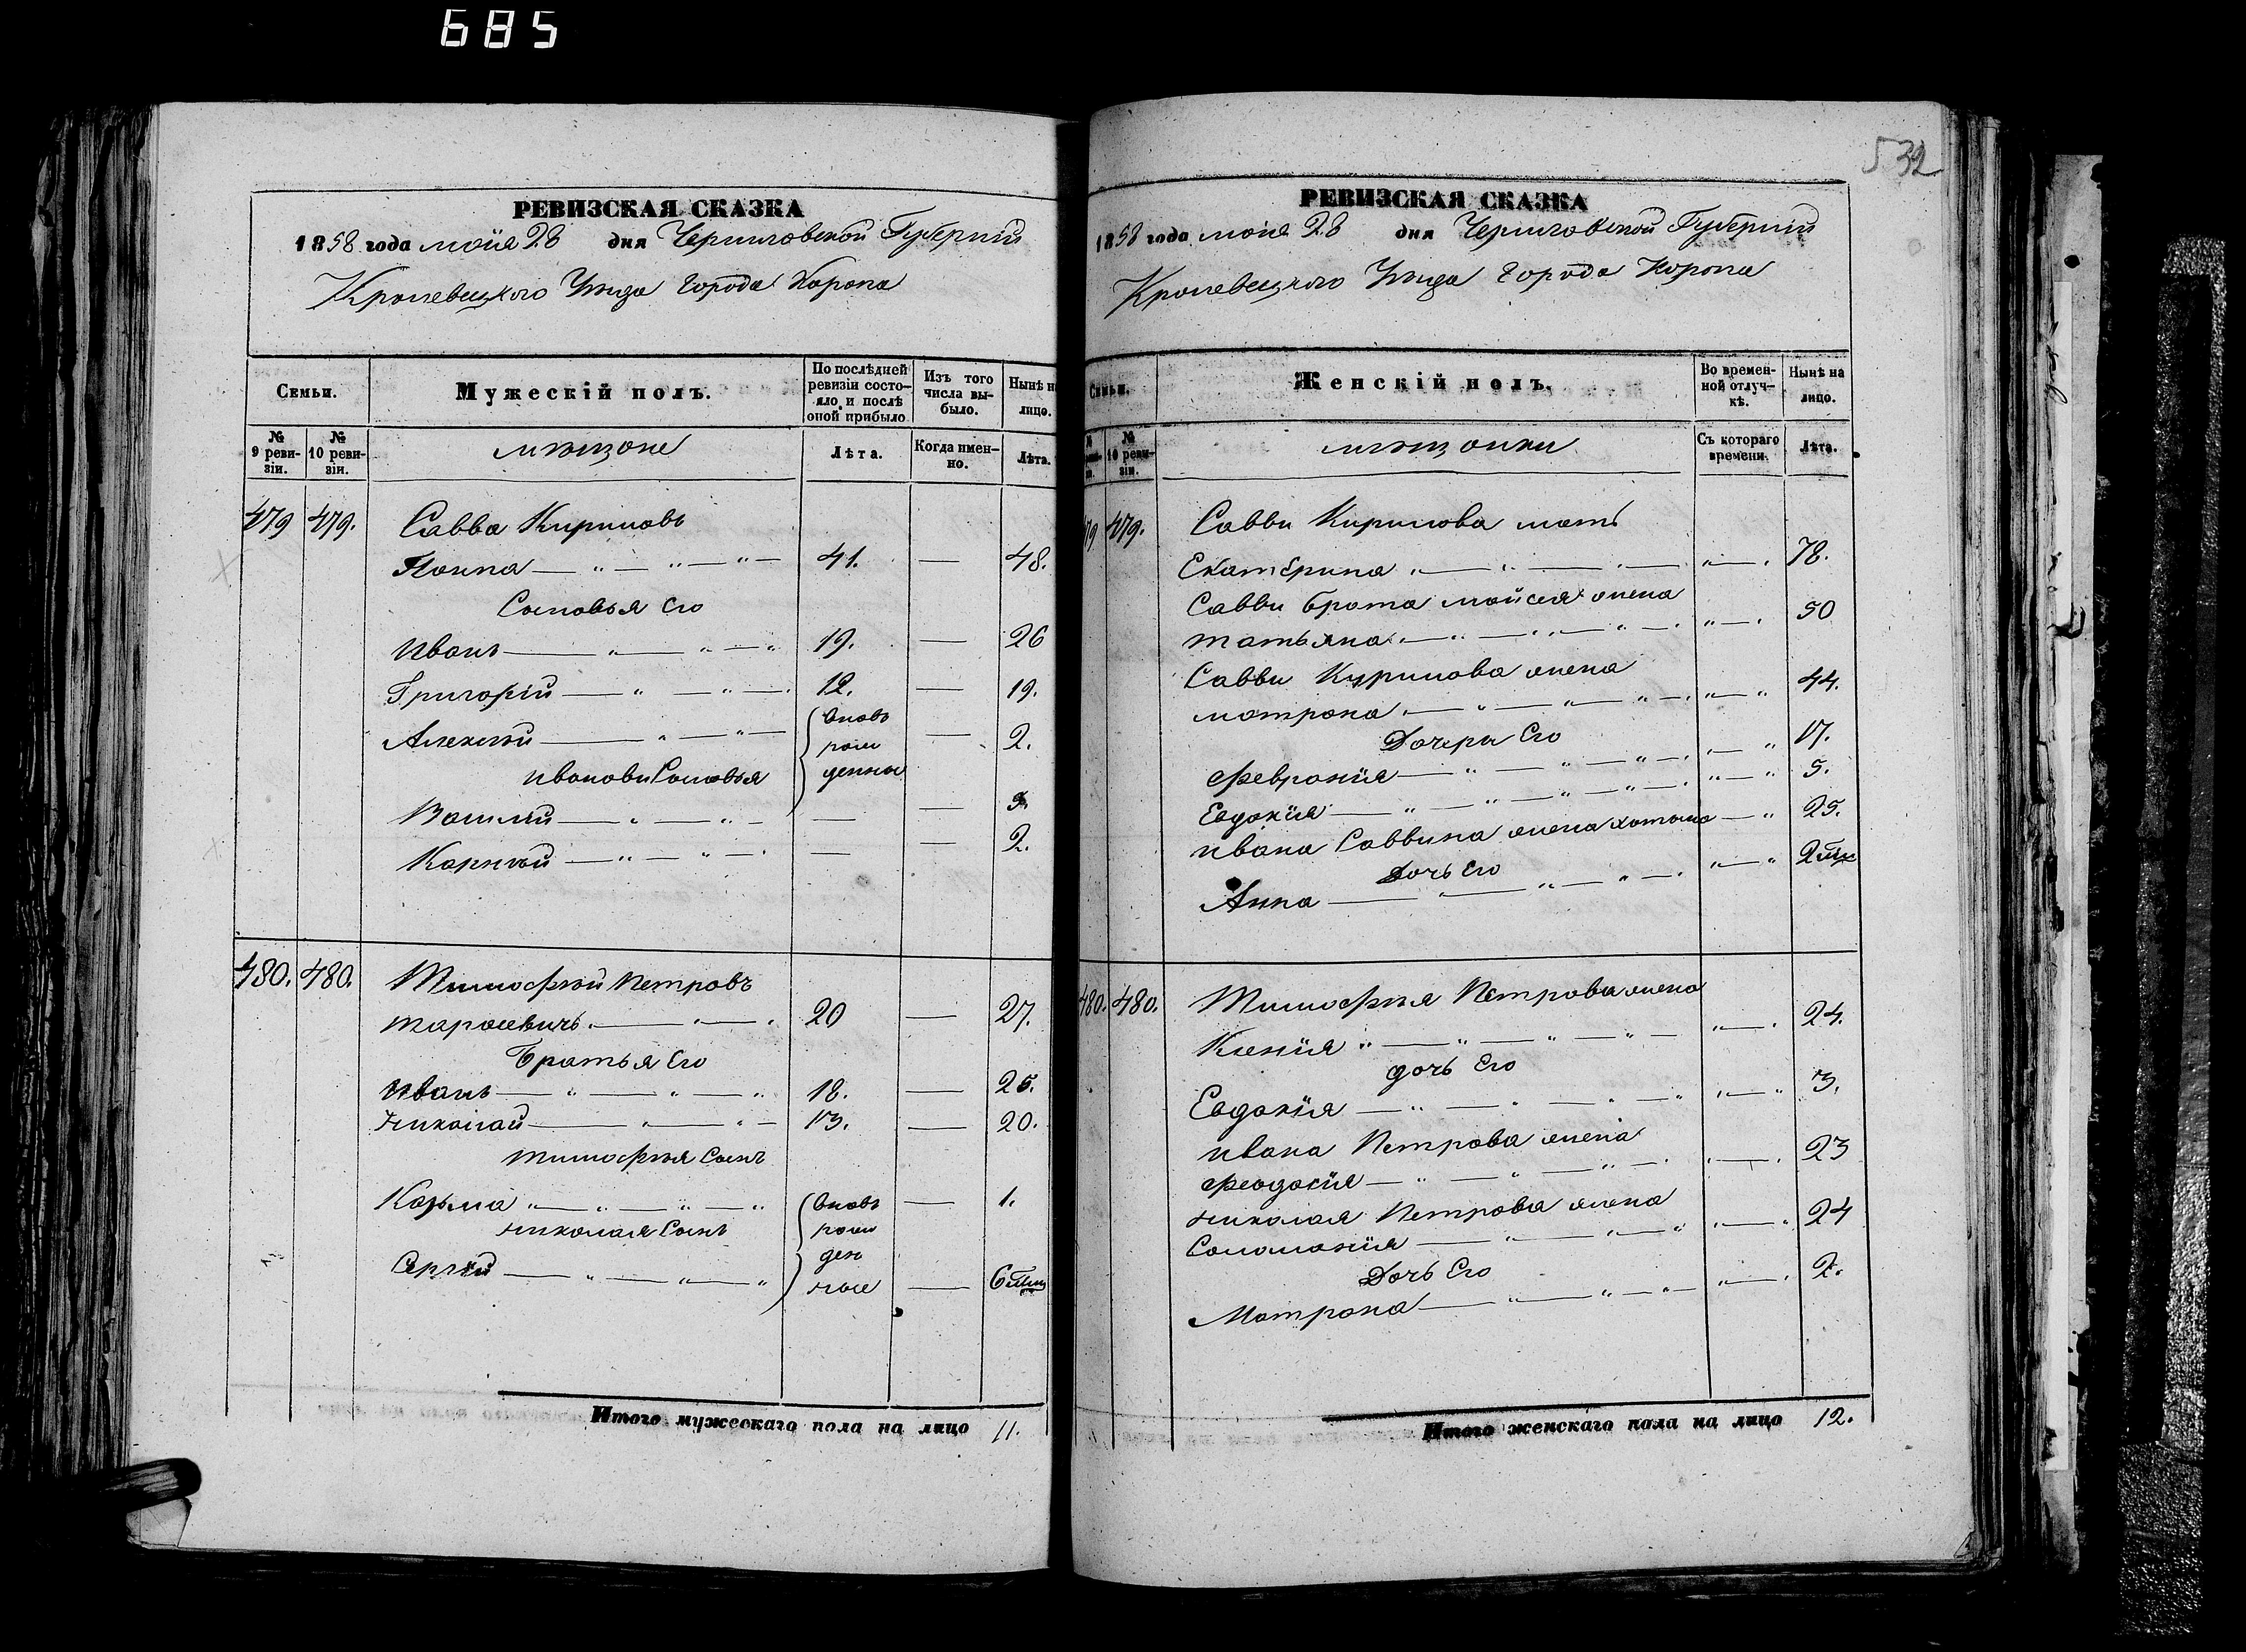 685
532
РЕВИЗСКАЯ СКАЗКА
1858 года маія 28 дня Черниговской Губерніи
Кролевецкого Уѣзда города Коропа
Семьи.
Мужескій полъ.
По послѣдней ревизіи состояло и послѣ оной прибыло
Изъ того числа выбыло.
Нынѣ на лицо.
№ 9 ревизіи.
№ 10 ревизіи.
мѣщане
Лѣта.
Когда именно.
Лѣта.
479 479. Савва Кириловъ
41. — 48.
Сыновья Его
Иванъ 19. — 26
Григорій 12. — 19.
Алексѣй — 2.
вновь рожденные
Ивановы Сыновья
Василій — — 3.
Корнѣй — — 2.
480. 480. Тимофѣй Петровъ
Тарасевичъ 20 — 27.
Братья Его
Иванъ 18. — 25.
Николай 13. — 20.
Тимофѣя Сынъ
Козьма — 1.
вновь рожденные
Николая Сынъ
Сергѣй — 6
Итого мужескаго пола на лицо 11.
РЕВИЗСКАЯ СКАЗКА
1858 года маіа 28 дня Черниговской Губерніи
Кролевецкого Уѣзда города Коропа
Семьи.
Женскій полъ.
Во временной отлучкѣ.
Нынѣ на лицо.
№ 10 ревизіи.
мѣщанки
Съ котораго времени.
Лѣта.
479. Саввы Кирилова мать
Екатерина 78.
Саввы брата Мойсея жена
Татьяна 50
Саввы Кирилова жена
Матрона 44.
Дочери Его
Февронія 17.
Евдокія 5.
Ивана Саввина жена 25.
Дочь Его
Анна 2
480. 480. Тимофѣя Петрова жена
Ксенія 24.
дочь Его
Евдокія 3.
Ивана Петрова жена
Феодосія 23
Николая Петрова жена
Соломонія 24
Дочь Его
Матрона 2.
Итого женскаго пола на лицо 12.